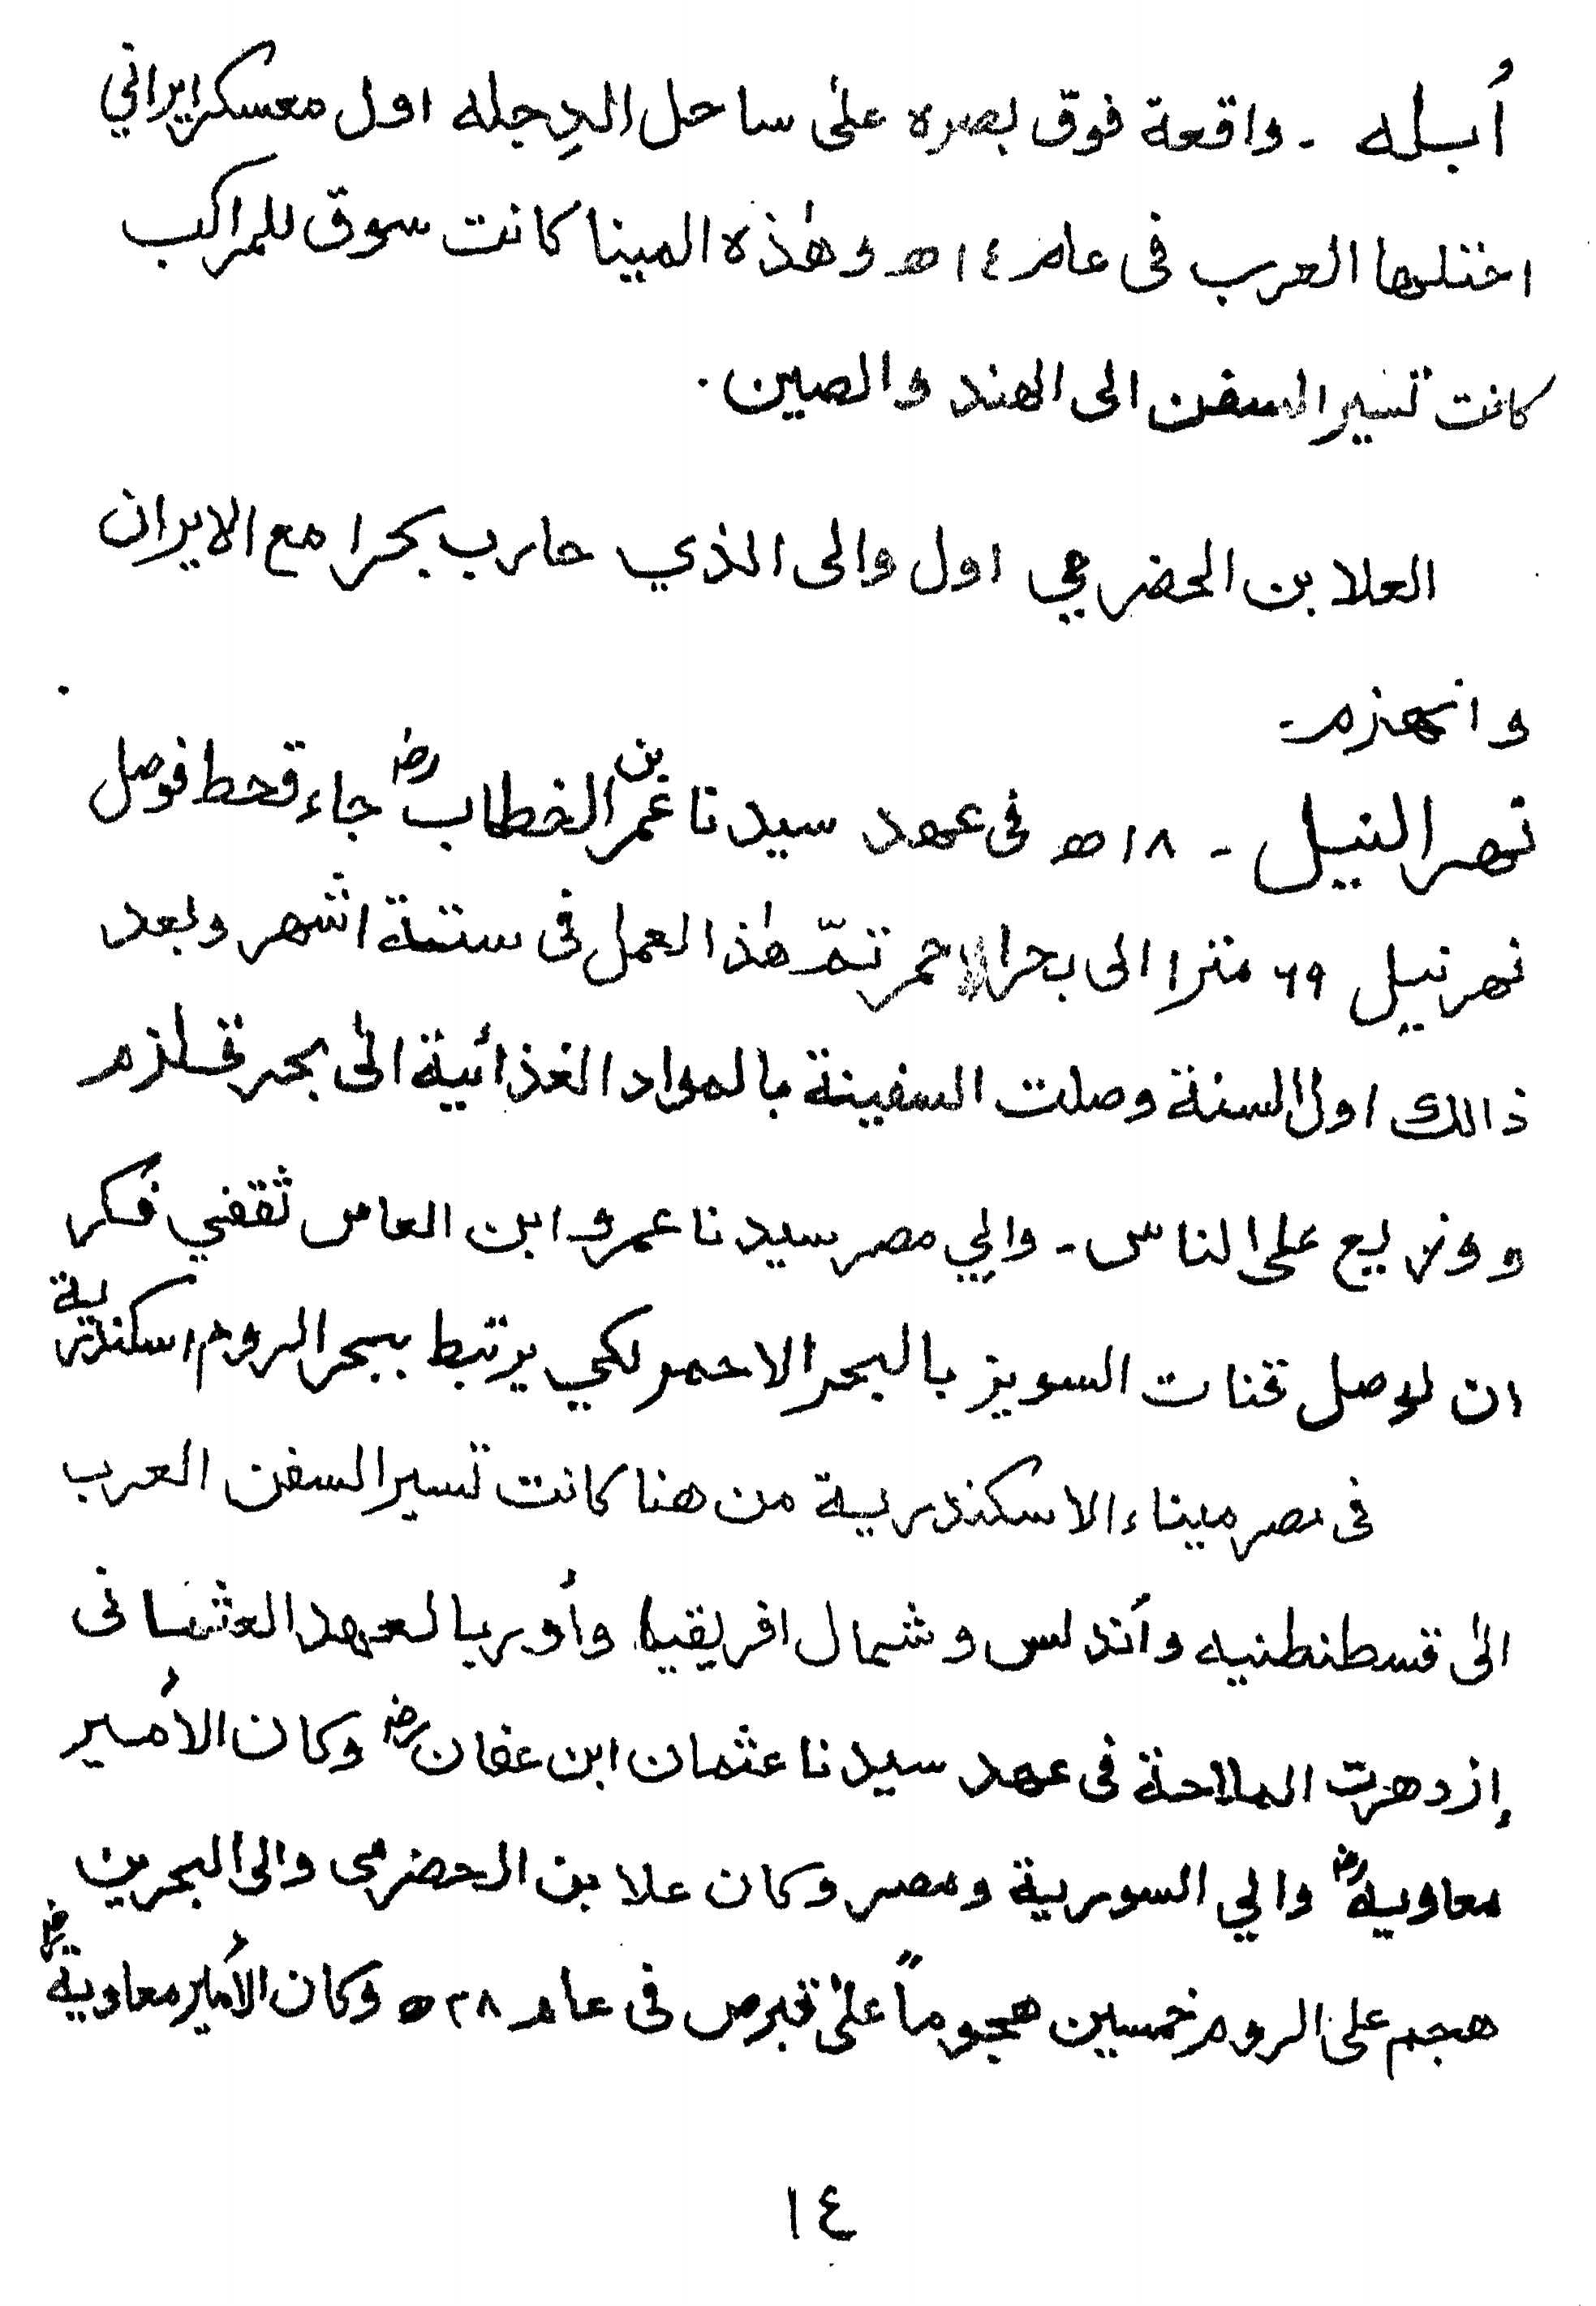 أُبله - واقعة فوق بصره على ساحل الدِجله اول معسكر ايراني
اختلها العرب فى عام ١٤ه وهٰذه المينا كانت سوق للمراكب
كانت تسير السفن الى الهند والصين.
العلا بن الحضرمي اول والى الذي حارب بحرا مع الايران
وانهزم-
نهر النيل - ١٨ه فى عهد سيدنا عمر بن الخطابؓ جاء قحط فوصل
نهر نيل ٦٩ مترا الى بحر الاحمر تمّ هٰذا العمل فى ستة اشهر وبعد
ذالك اول السنة وصلت السفينة بالمواد الغذائية الىٰ بحر قلزم
ووزيع على الناس - والي مصر سيدنا عمرو ابن العاص ثقفي فكر
ان لوصل قنات السويز بالبحر الاحمر لكي يرتبط ببحر الروم اسكندرية
فى مصر ميناء الاسكندرية من هنا كانت تسير السفن العرب
الىٰ قسطنطنيه وأندلس وشمال افريقيا وأوربا لعهد العثمانى
إزدهرت الملاحة فى عهد سيدنا عثمان ابن عفانؓ وكان الأمير
معاويهؓ والي السورية ومصر وكان علا بن الحضرمى والى البحرين
هجم على الروم خمسين هجوماً علىٰ قبرص فى عام ٢٨ه وكان الأمير معاويةؓ
١٤